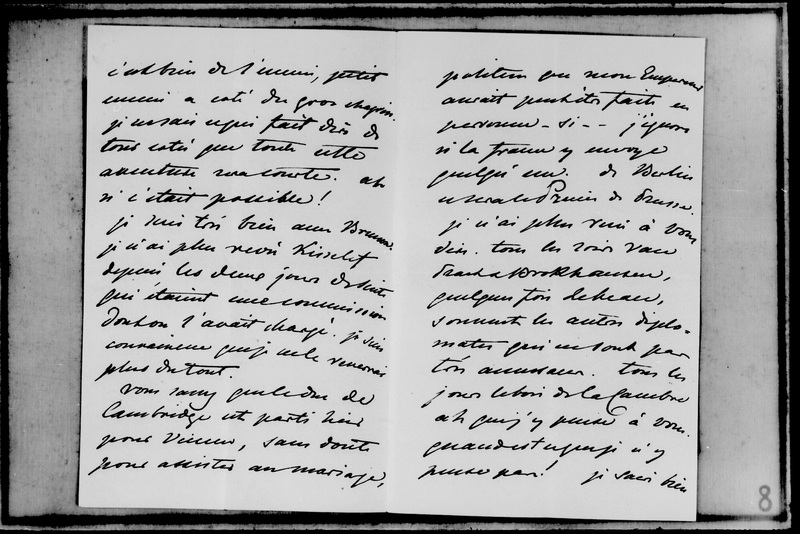 c'est bien de l'ennui, petit
ennui a coté du gros chagrin.
je ne sais ce qui fait dire de
tous cotés que toute cette
aventure sera courte. ah
si c'était possible!
je suis très bien avec Brunnow.
je n'ai plus revu Kisselef
depuis les deux jours de suite
qui étaient une commission
dont on l'avait chargé. je suis
convaincue que je ne le reverrai
plus du tout.
Vous savez que le duc de
Cambridge est parti hier
pour Vienne, sans doute
pour assister au mariage,
politesse que mon Empereur
aurait peut être faite en
personne - si -- j'ignore
si la france y envoye
quelqu'un. de Berlin
ce sera le Prince de Prusse.
je n'ai plus rien à vous
dire. tous les soirs Van
Praet & Brokhausen,
quelques fois Lebeau,
souvent les autres diplo-
mates qui ne sont pas
très amusans. tous les
jours le bois de la Cambre
ah que j'y pense à vous.
quand est ce que je n'y
pense pas! je sais bien
8